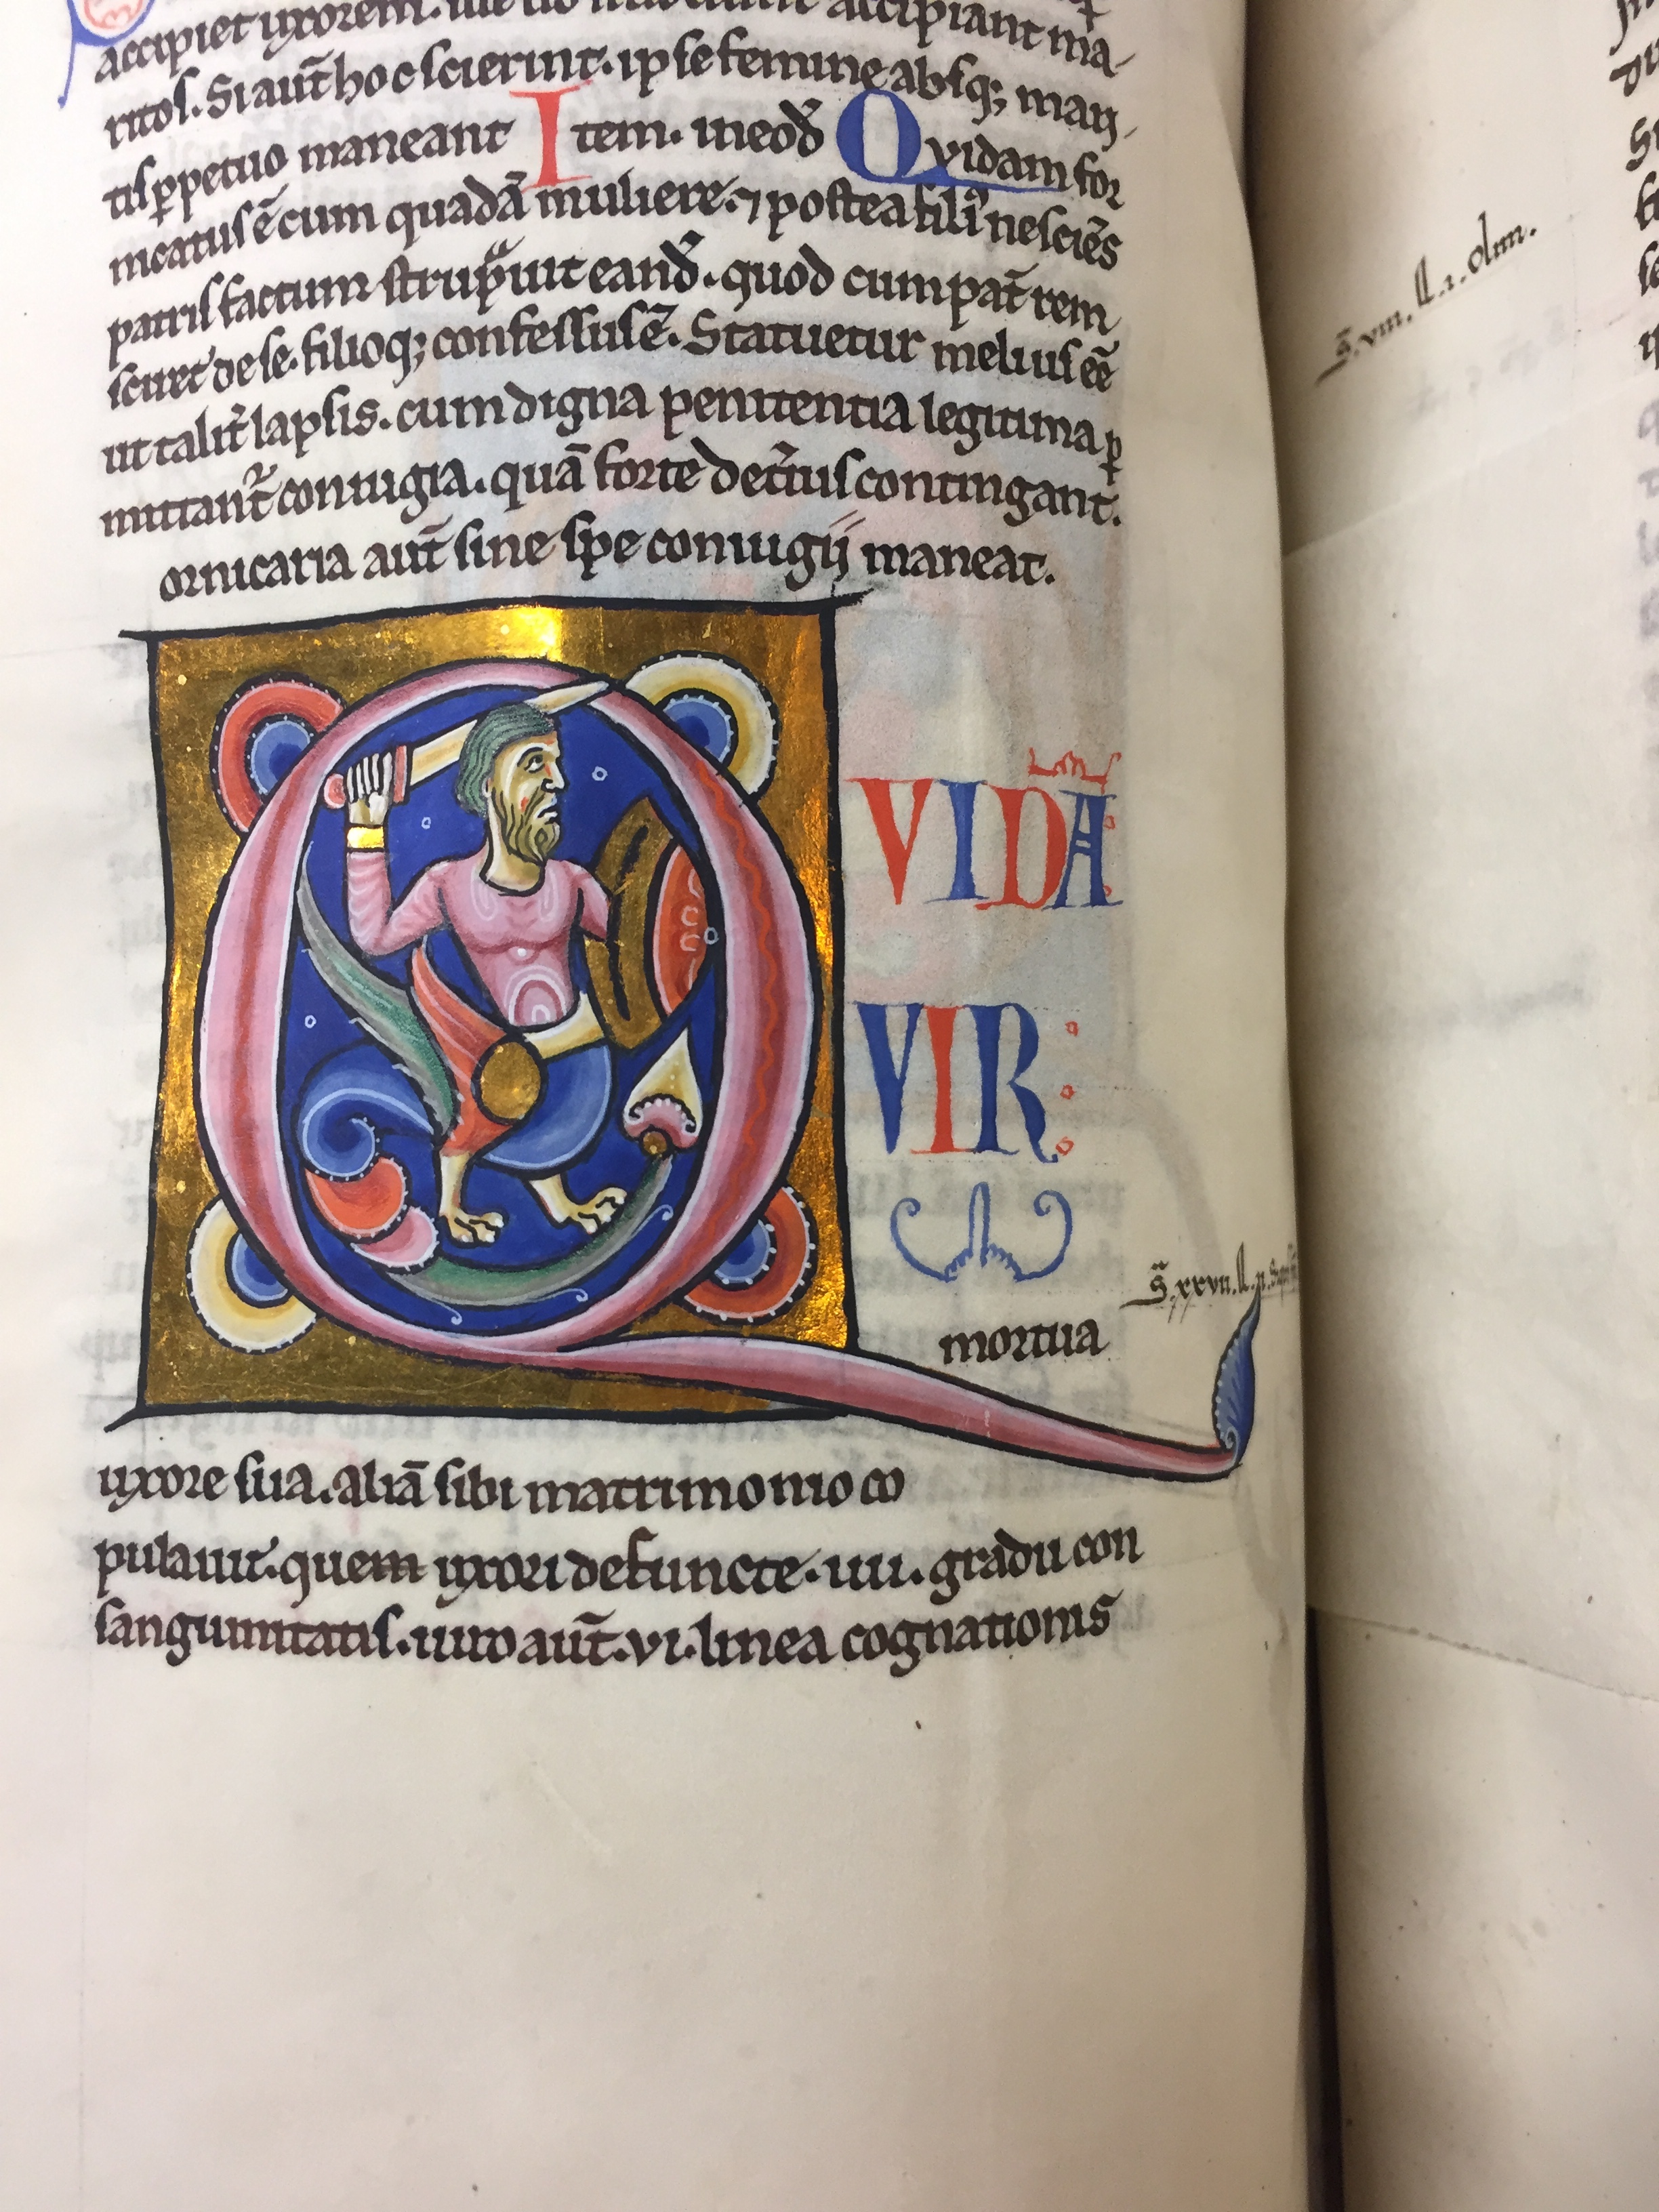 accipiet uxorem. accipiant ma-
ritos. Si aut̄ hoc scierint. ipse femine absq; mari-
tis ꝑpetuo maneant Item. ineod̄ Qvidam for
nicatus ē cum quadā muliere. ⁊ postea filiꝰ nesciēs
patris factum strupͣuit eand̄. quod cum pat̄ rem
sciret de se. filioq; confessus ē. Statuetur melius eē
ut talit̄ lapsis. cum digna penitentia legitima ꝑ
mittant᷑ coniugia. quā forte det̄ius contingant.
ornicaria aut̄ sine spe coniugij maneat.
QVIDĀ
VIR:
mortua
uxore sua. aliā sibi matrimonio co
pulauit. quem uxori defuncte. iiii. gradu con
sanguinitatis. uiro aut̄. vi. linea cognationis
S̄. viii. ll. i. olim.
S̄. xxvii. ll. ii.